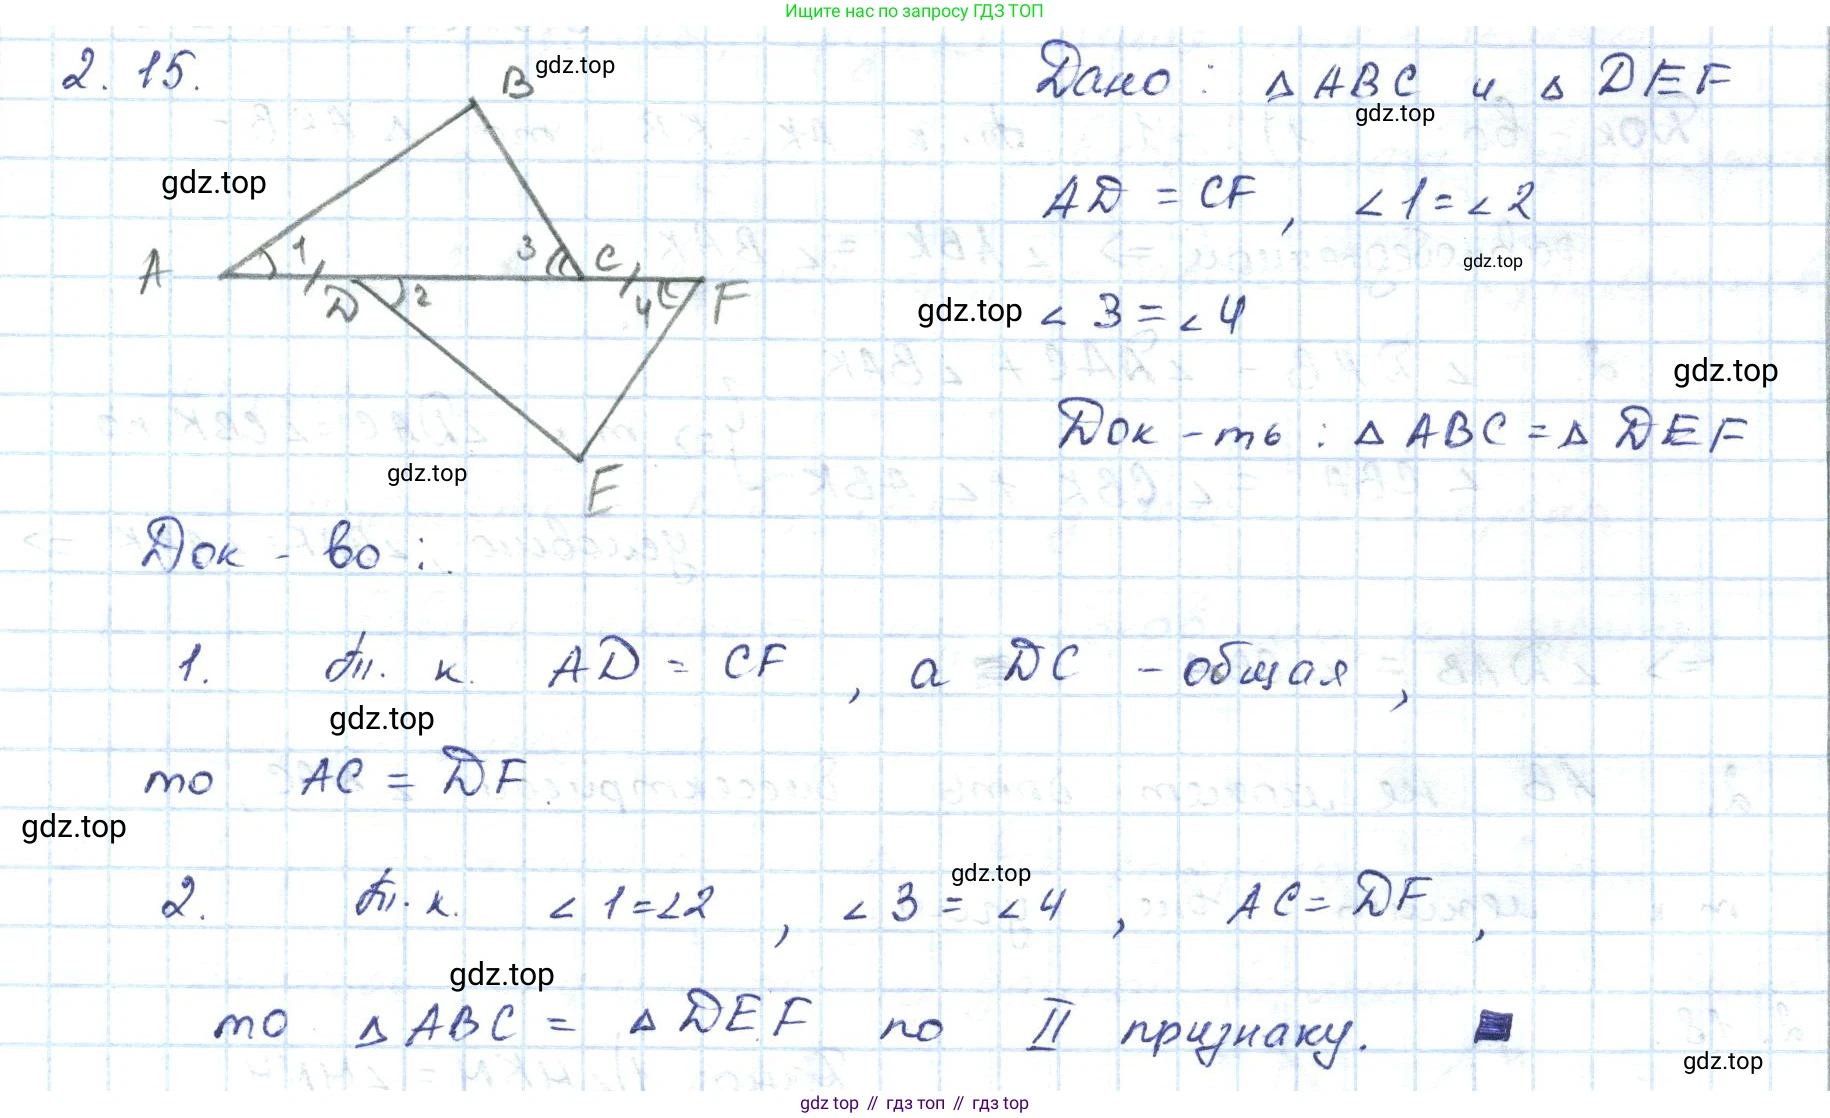 Ищите нас по запросу ГДЗ ТОП
2.15.
B
gdz.top
Дано: Δ ABC и Δ DEF
gdz.top
gdz.top
AD = CF, ∠1=∠2
A 1 3 C
gdz.top
D 2 4 F
gdz.top
∠3=∠4
gdz.top
Док-ть: Δ ABC = Δ DEF
gdz.top
E
Док-во:
1. Т. к. AD = CF, а DC - общая,
gdz.top
то AC = DF.
gdz.top
gdz.top
2. Т. к. ∠1=∠2, ∠3=∠4, AC=DF,
gdz.top
то Δ ABC = Δ DEF по II признаку.
gdz.top
gdz top // гдз топ // гдз top